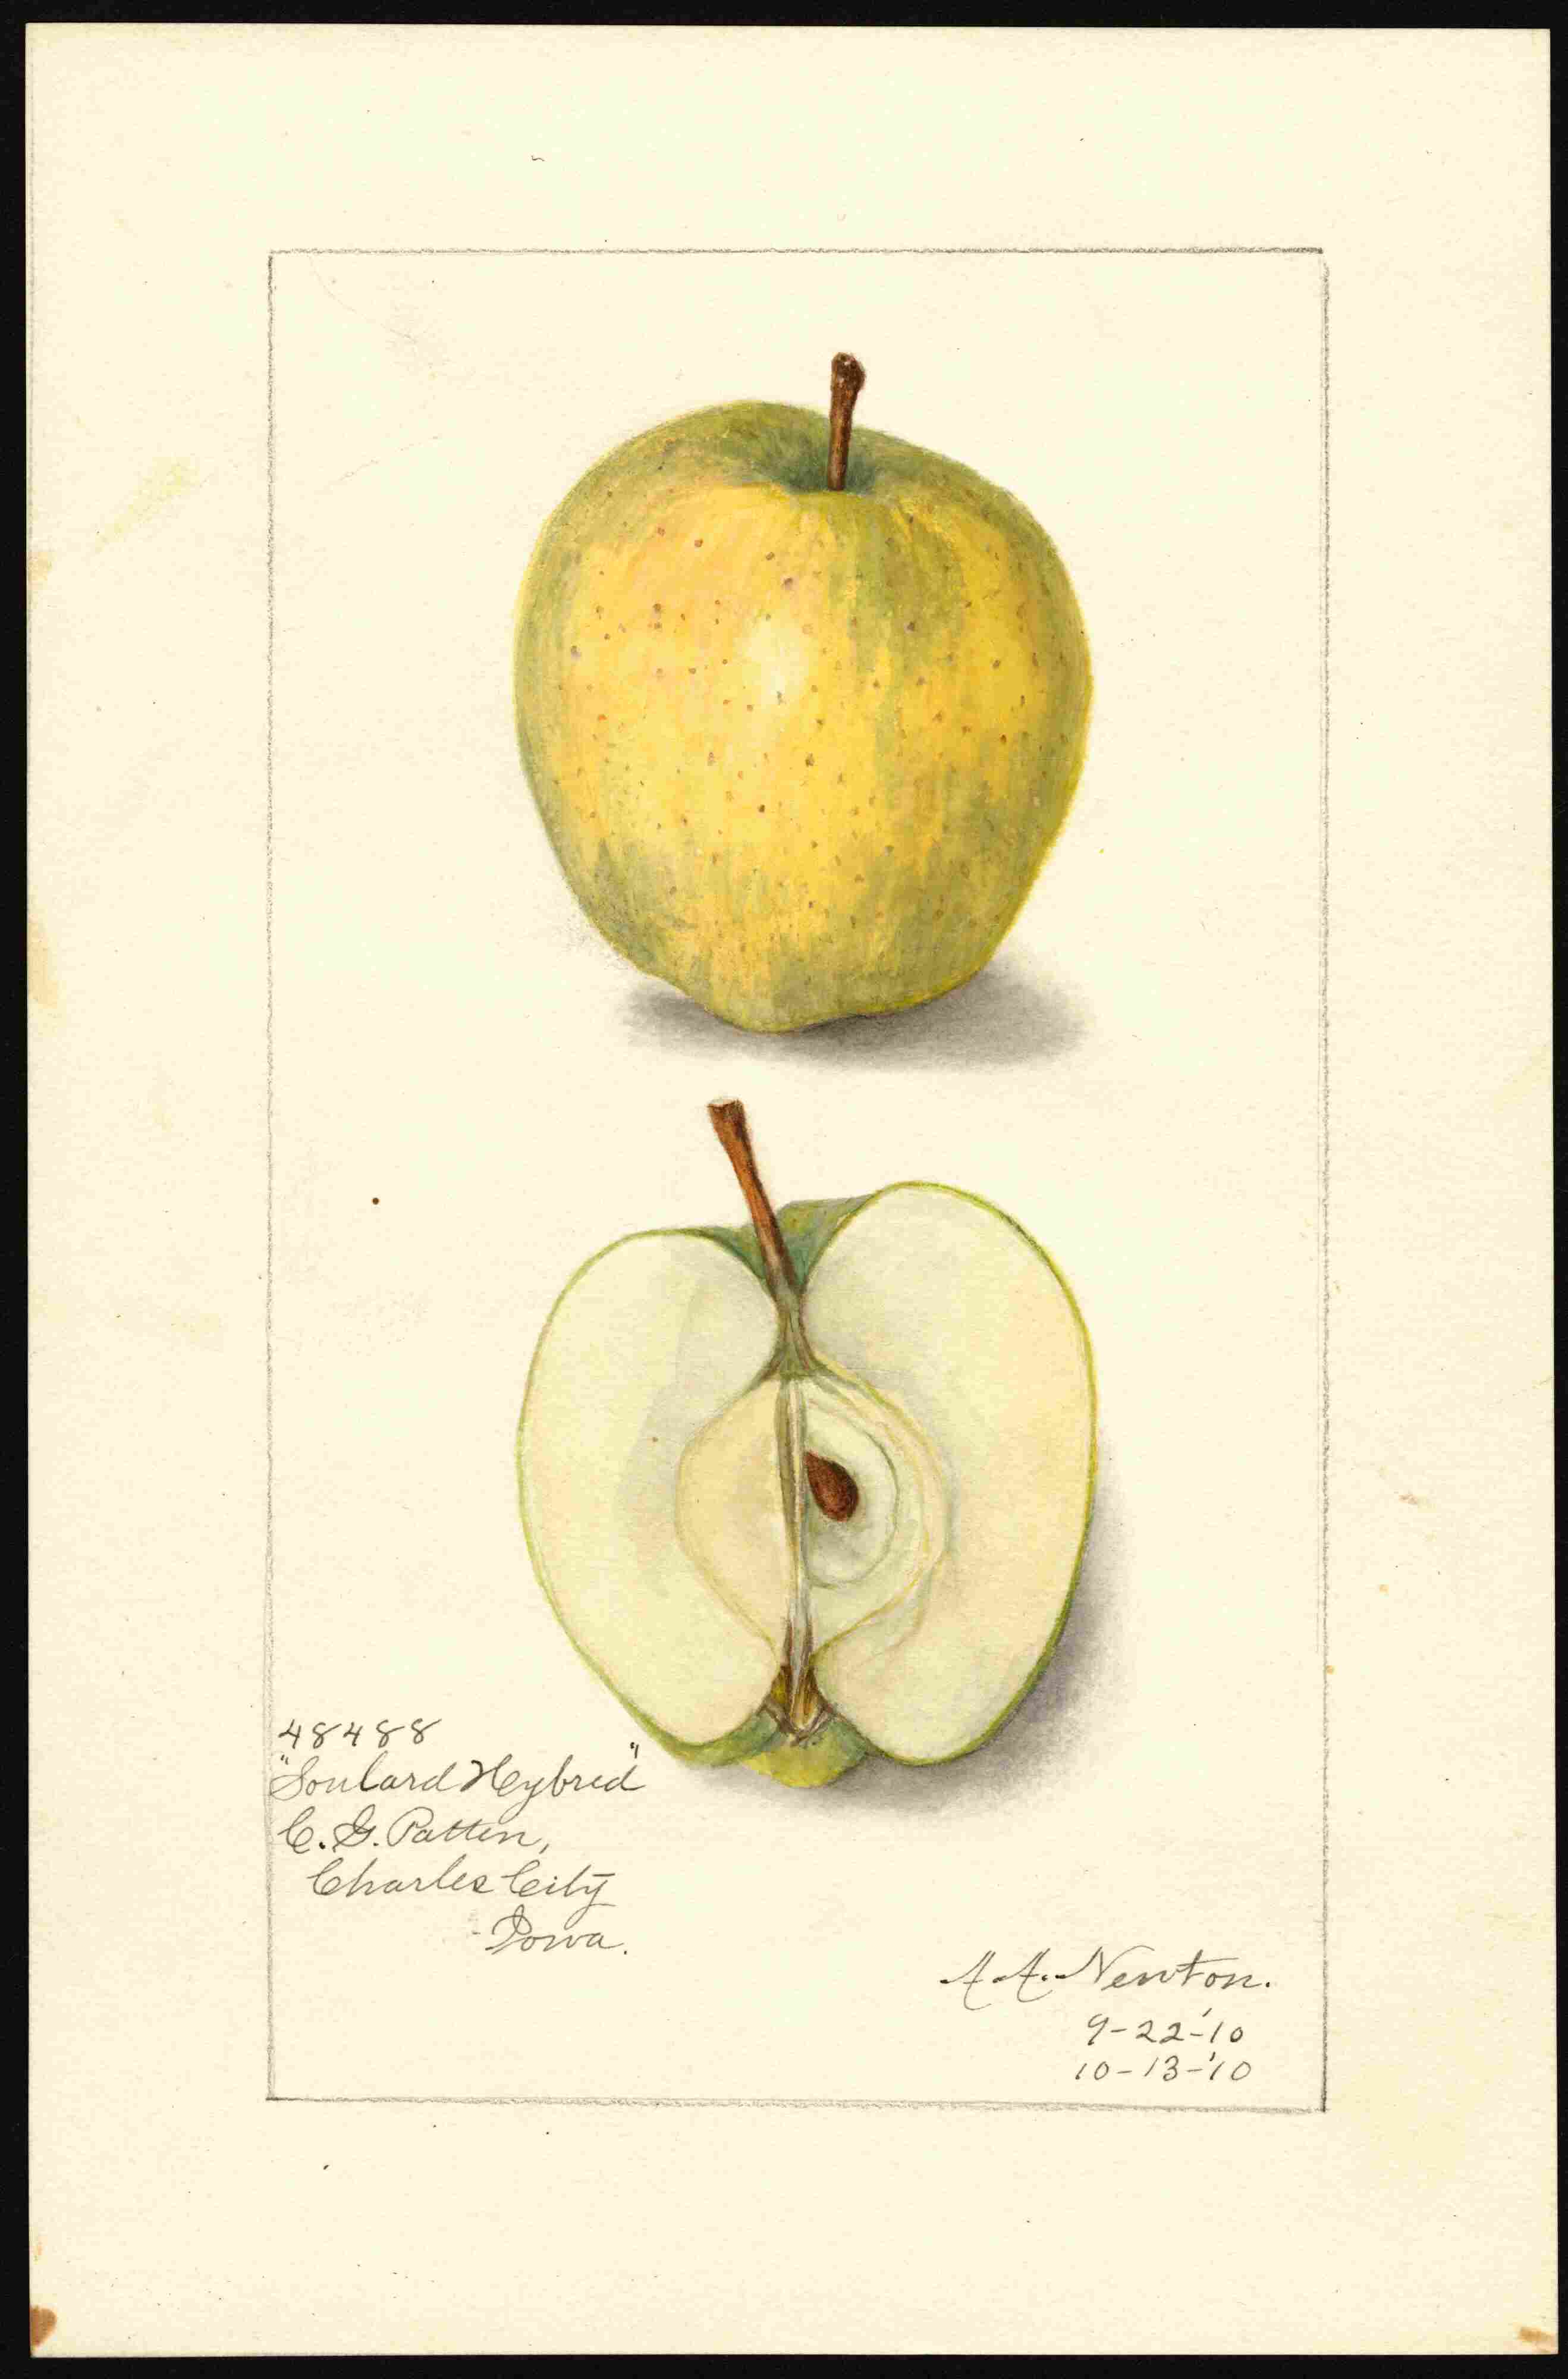 48488
"Soulard Hybrid"
C. G. Patten,
Charles City
Iowa.
A. A. Newton.
9-22-'10
10-13-'10